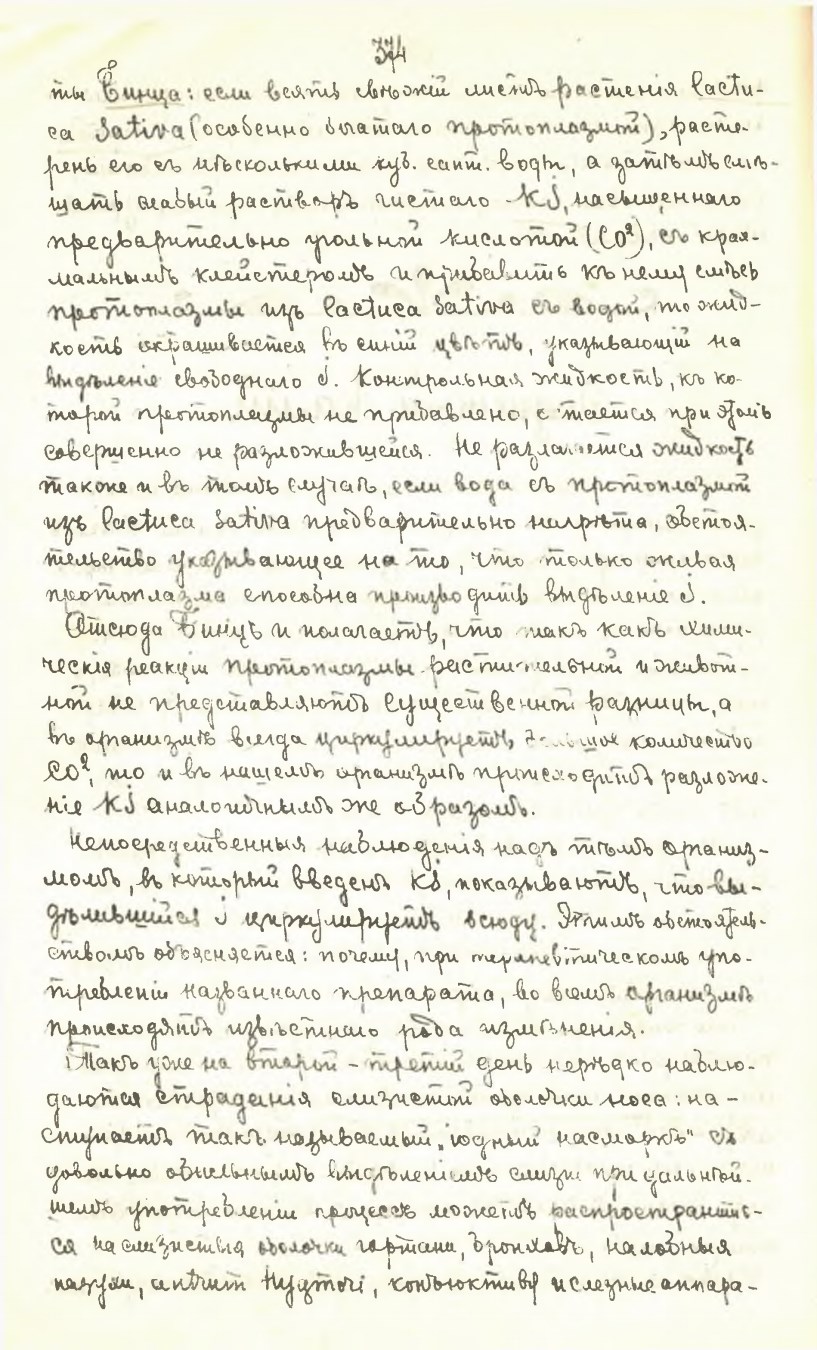 374
ты Бинца: если взять свѣжій листъ растенія lactu-
ca Sativa (особенно богатаго протоплазмой), расте-
рень его съ нѣсколькими куб. сант. воды, а затѣмъ смѣ-
шать слабый растворъ чистаго KJ, насыщеннаго
предварительно угольной кислотой (CO²), съ крах-
мальнымъ клейстеромъ и прибавить къ нему смѣсь
протоплазмы изъ lactuca Sativa съ водой, то жид-
кость окрашивается въ синій цвѣтъ, указывающій на
выдѣленіе свободнаго J. Контрольная жидкость, къ ко-
торой протоплазмы не прибавлено, остается при этомъ
совершенно не разложившейся. Не разлагается жидкость
также и въ томъ случаѣ, если вода съ протоплазмой
изъ lactuca Sativa предварительно нагрѣта, обстоя-
тельство указывающее на то, что только живая
протоплазма способна производить выдѣленіе J.
Отсюда Бинцъ и полагаетъ, что такъ какъ хими-
ческія реакціи протоплазмы растительной и живот-
ной не представляютъ существенной разницы, а
въ организмѣ всегда циркулируетъ большое количество
CO², то и въ нашемъ организмѣ происходитъ разложе-
ніе KJ аналогичнымъ же образомъ.
Непосредственныя наблюденія надъ тѣмъ организ-
момъ, въ который введенъ KJ, показываютъ, что вы-
дѣлившійся J циркулируетъ всюду. Этимъ обстоятель-
ствомъ объясняется: почему, при терапевтическомъ упо-
требленіи названнаго препарата, во всемъ организмѣ
происходятъ извѣстнаго рода измѣненія.
Такъ уже на второй - третій день нерѣдко наблю-
даются страданія слизистой оболочки носа: на-
ступаетъ такъ называемый „іодный насморкъ" съ
довольно обильнымъ выдѣленіемъ слизи при дальнѣй-
шемъ употребленіи процессъ можетъ распространить-
ся на слизистыя оболочки гортани, бронховъ, налобныя
пазухи, antrum Highmori, конъюктиву и слезные аппара-